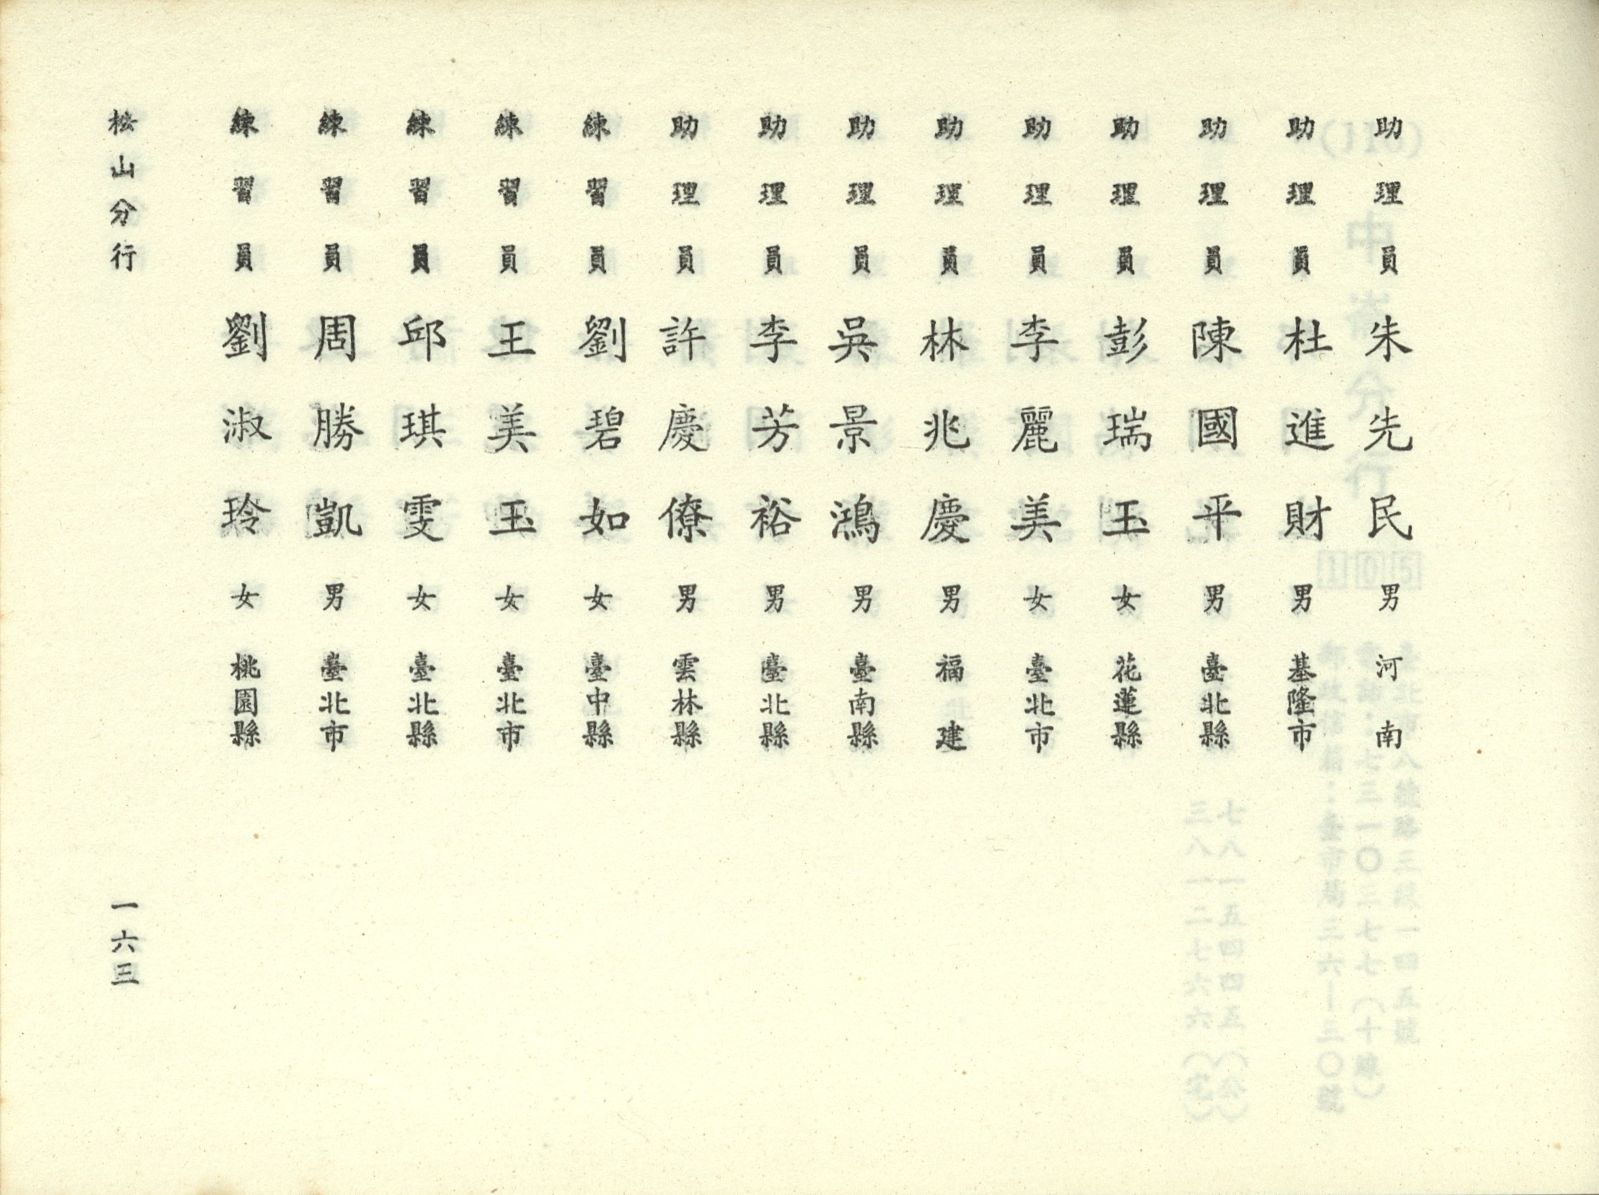 助理員 朱先民 男 河南
助理員 杜進財 男 基隆市
助理員 陳國平 男 臺北縣
助理員 彭瑞玉 女 花蓮縣
助理員 李麗美 女 臺北市
助理員 林兆慶 男 福建
助理員 吳景鴻 男 臺南縣
助理員 李芳裕 男 臺北縣
助理員 許慶僚 男 雲林縣
練習員 劉碧如 女 臺中縣
練習員 王美玉 女 臺北市
練習員 邱琪雯 女 臺北縣
練習員 周勝凱 男 臺北市
練習員 劉淑玲 女 桃園縣
松山分行
一六三